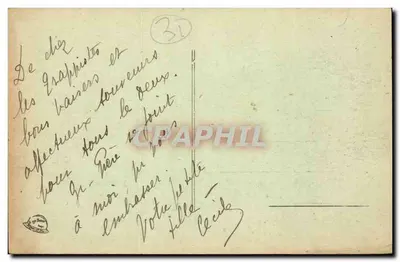 31
De chez
les Trappistes
bons baisers et
affectueux souvenirs
pour tous le deux.
Gr. Père se joint
à moi pr vous
embrasser.
Votre petite
fille
Cécile
CPARAMA